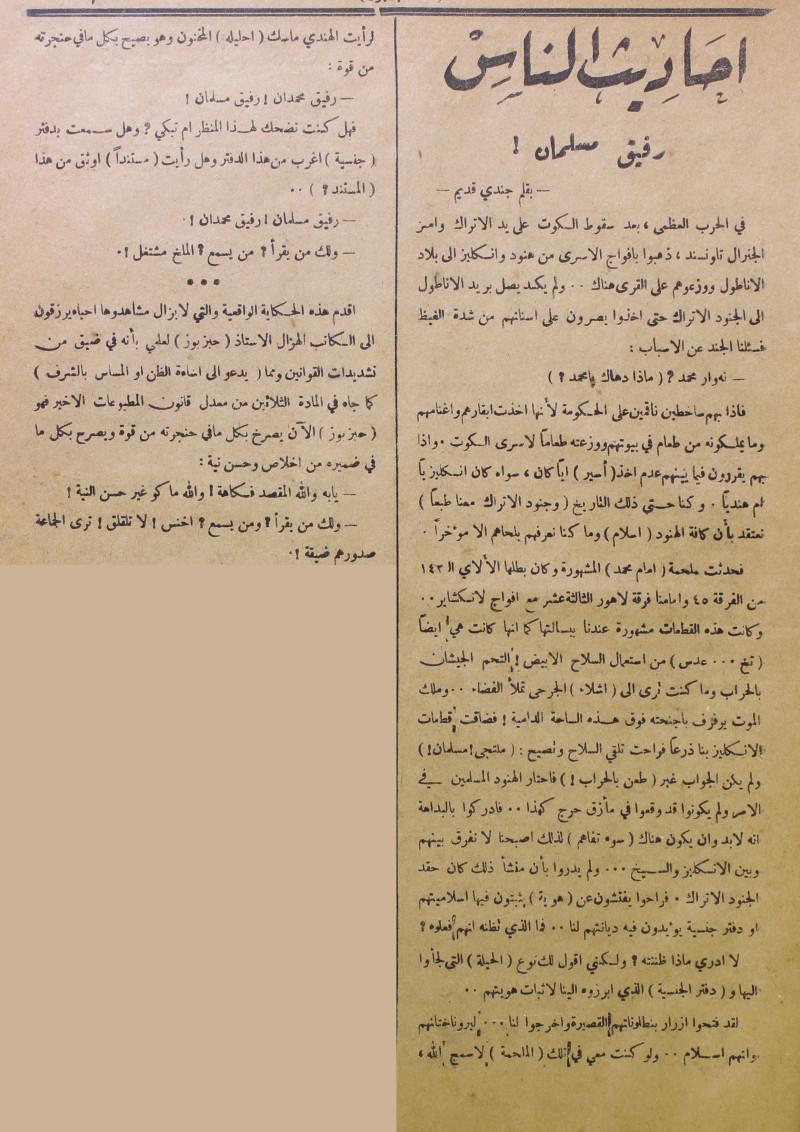 احاديث الناس
رفيق مسلمان !
— بقلم جندي قديم —
في الحرب العظمى ، بعد سقوط الكوت على يد الاتراك واسر
الجنرال تاونسند ، ذهبوا بافواج الاسرى من هنود وانكليز الى بلاد
الاناطول ووزعوهم على القرى هناك ٠٠ ولم يكد يصل بريد الاناطول
الى الجنود الاتراك حتى اخذوا يصرون على اسنانهم من شدة الغيظ
فسئلنا الجند عن الاسباب :
— نه وار محمد ? ( ماذا دهاك يا محمد ? )
فاذا بهم ساخطين ناقمين على الحكومة لأنها اخذت ابقارهم واغنامهم
وما يملكونه من طعام في بيوتهم ووزعته طعاماً لاسرى الكوت ٠ واذا
بهم يقررون فيما بينهم عدم اخذ ( أسير ) اياً كان ، سواء كان انكليزياً
ام هندياً ٠ وكنا حتى ذلك التاريخ ( وجنود الاتراك معنا طبعاً )
نعتقد بأن كافة الهنود ( اسلام ) وما كنا نعرفهم بلحاهم الا موءخراً ٠
فحدثت ملحمة ( امام محمد ) المشهورة وكان بطلها الألاي الـ ١٤٢
من الفرقة ٤٥ وامامنا فرقة لاهور الثالثة عشر مع افواج لانكشاير ٠٠
وكانت هذه القطعات مشهورة عندنا ببسالتها كما انها كانت هي ايضاً
( تبغ ٠٠٠ عدس ) من استعمال السلاح الابيض ! التحم الجيشان
بالحراب وما كنت ترى الى ( اشلاء ) الجرحى تملأ الفضاء ٠٠ وملك
الموت يرفرف باجنحته فوق هذه الساحة الدامية ! فضاقت قطعات
الانكليز بنا ذرعاً فراحت تلقي السلاح وتصيح : ( ملتجى ! مسلمان ! )
ولم يكن الجواب غير ( طعن بالحراب ! ) فاحتار الهنود المسلمين في
الامر ولم يكونوا قد وقعوا في مأزق حرج كهذا ٠٠ فادركوا بالبداهة
انه لابد وان يكون هناك ( سوء تفاهم ) لذلك اصبحنا لا نفرق بينهم
وبين الانكليز والسيخ ٠٠٠ ولم يدروا بأن منشأ ذلك كان حقد
الجنود الاتراك ٠ فراحوا يفتشون عن ( هوية ) يثبتون فيها اسلاميتهم
او دفتر جنسية يوءيدون فيه ديانتهم لنا ٠٠ فما الذي تظنه انهم فعلوه ?
لا ادري ماذا ظننته ? ولكني اقول لك نوع ( الحيلة ) التي لجأوا
اليها و ( دفتر الجنسية ) الذي ابرزوه الينا لاثبات هويتهم ٠٠
لقد فتحوا ازرار بنطلوناتهم القصيرة واخرجوا لنا ٠٠٠ ليرونا ختانهم
وانهم اسلام ٠٠ ولو كنت معي في تلك ( الملحمة ) لاسمح الله ،
لرأيت الهندي ماسك ( احليله ) المختون وهو يصيح بكل مافي حنجرته
من قوة :
— رفيق محمدان ! رفيق مسلمان !
فهل كنت تضحك لهذا المنظر ام تبكي ? وهل سمعت بدفتر
( جنسية ) اغرب من هذا الدفتر وهل رأيت ( مستنداً ) اوثق من هذا
( المستند ? ) ٠٠
— رفيق مسلمان ! رفيق محمدان ! ٠
— ولك من يقرأ ? من يسمع ? الماخ مشتغل ! ٠
• • •
اقدم هذه الحكاية الواقعية والتي لايزال مشاهدوها احياء يرزقون
الى الكاتب الهزال الاستاذ ( حبزبوز ) لعلمي بأنه في ضيق من
تشديدات القوانين ومما ( يدعو الى اساءة الظن او المساس بالشرف )
كما جاء في المادة الثلاثين من معدل قانون المطبوعات الاخير فهو
( حبزبوز ) الآن يصرخ بكل مافي حنجرته من قوة ويصرح بكل ما
في ضميره من اخلاص وحسن نية :
— يابه والله المقصد فكاهة ! والله ما كو غير حسن النية !
— ولك من يقرأ ? ومن يسمع ? اخنس ! لا تلقلق ! ترى الجماعة
صدورهم ضيقة ! ٠